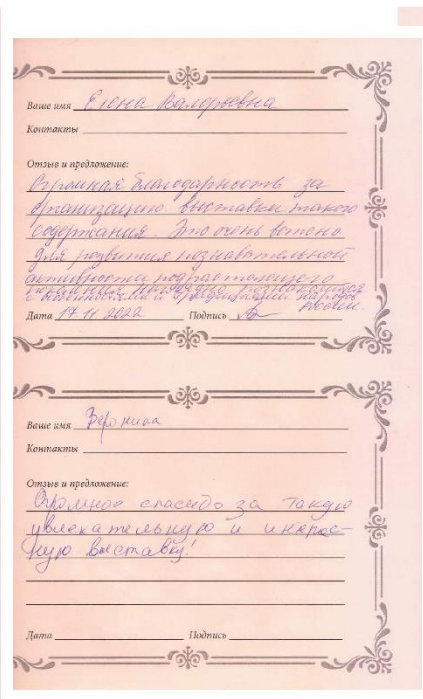 Ваше имя Елена Валерьевна
Контакты
Отзыв и предложение:
Огромная благодарность за
организацию выставки такого
содержания. Это очень важно
для развития познавательной
активности подрастающего
поколения наглядно познакомиться
с ценностями и традициями народов
России.
Дата 17 11 2022 Подпись
Ваше имя Вероника
Контакты
Отзыв и предложение:
Огромное спасибо за такую
увлекательную и
ную выставку!
Дата Подпись